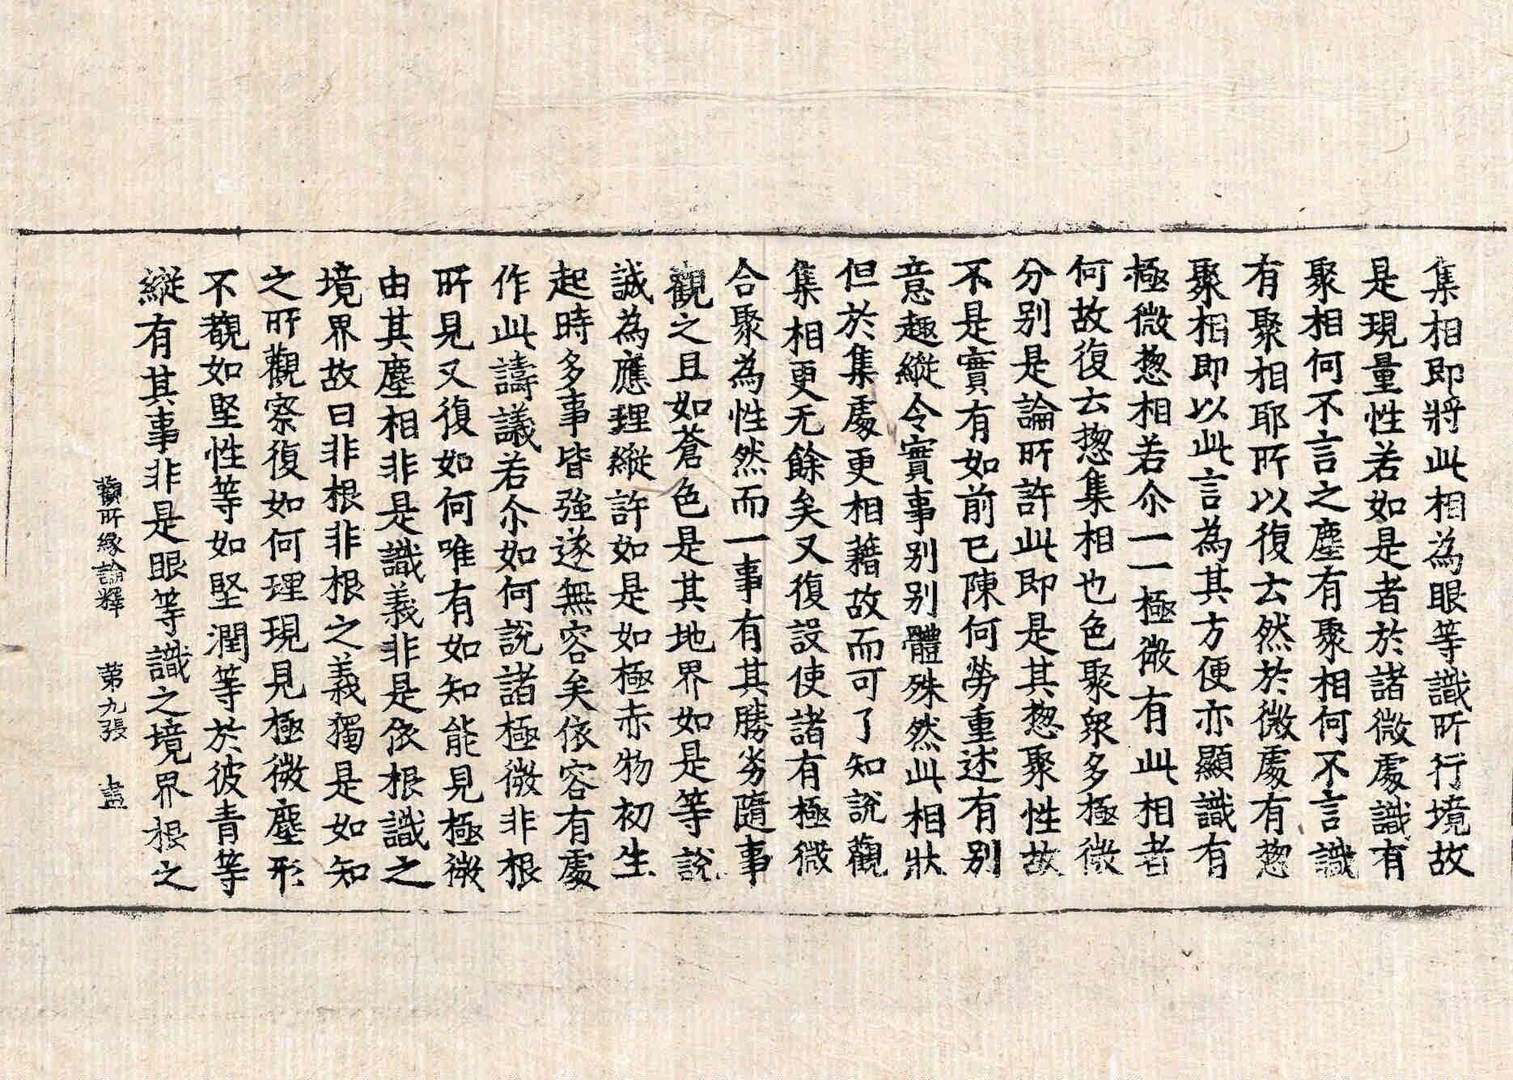 集相即將此相為眼等識所行境故
是現量性若如是者於諸微處識有
聚相何不言之塵有聚相何不言識
有聚相耶所以復去然於微處有惣
聚相即以此言為其方便亦顯識有
極微惣相若尒一一極微有此相者
何故復去惣集相也色聚衆多極微
分别是論所許此即是其惣聚性故
不是實有如前已陳何勞重述有别
意趣縱令實事别别體殊然此相狀
但於集處更相藉故而可了知說觀
集相更无餘矣又復設使諸有極微
合聚為性然而一事有其勝劣隨事
觀之且如蒼色是其地界如是等說
誠為應理縱許如是如極赤物初生
起時多事皆強遂無容矣依容有處
作此譸議若尒如何說諸極微非根
所見又復如何唯有如知能見極微
由其塵相非是識義非是依根識之
境界故曰非根非根之義獨是如知
之所觀察復如何理現見極微塵形
不覩如堅性等如堅潤等於彼青等
縱有其事非是眼等識之境界根之
觀所緣論釋 苐九張 盡